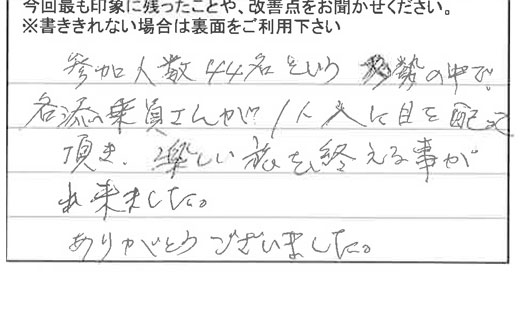 今回最も印象に残ったことや、改善点をお聞かせください。
※書ききれない場合は裏面をご利用下さい
参加人数44名という 多勢の中で、
各添乗員さんが 1人1人に目を配って
頂き、楽しい旅を終える事が
出来ました。
ありがとうございました。